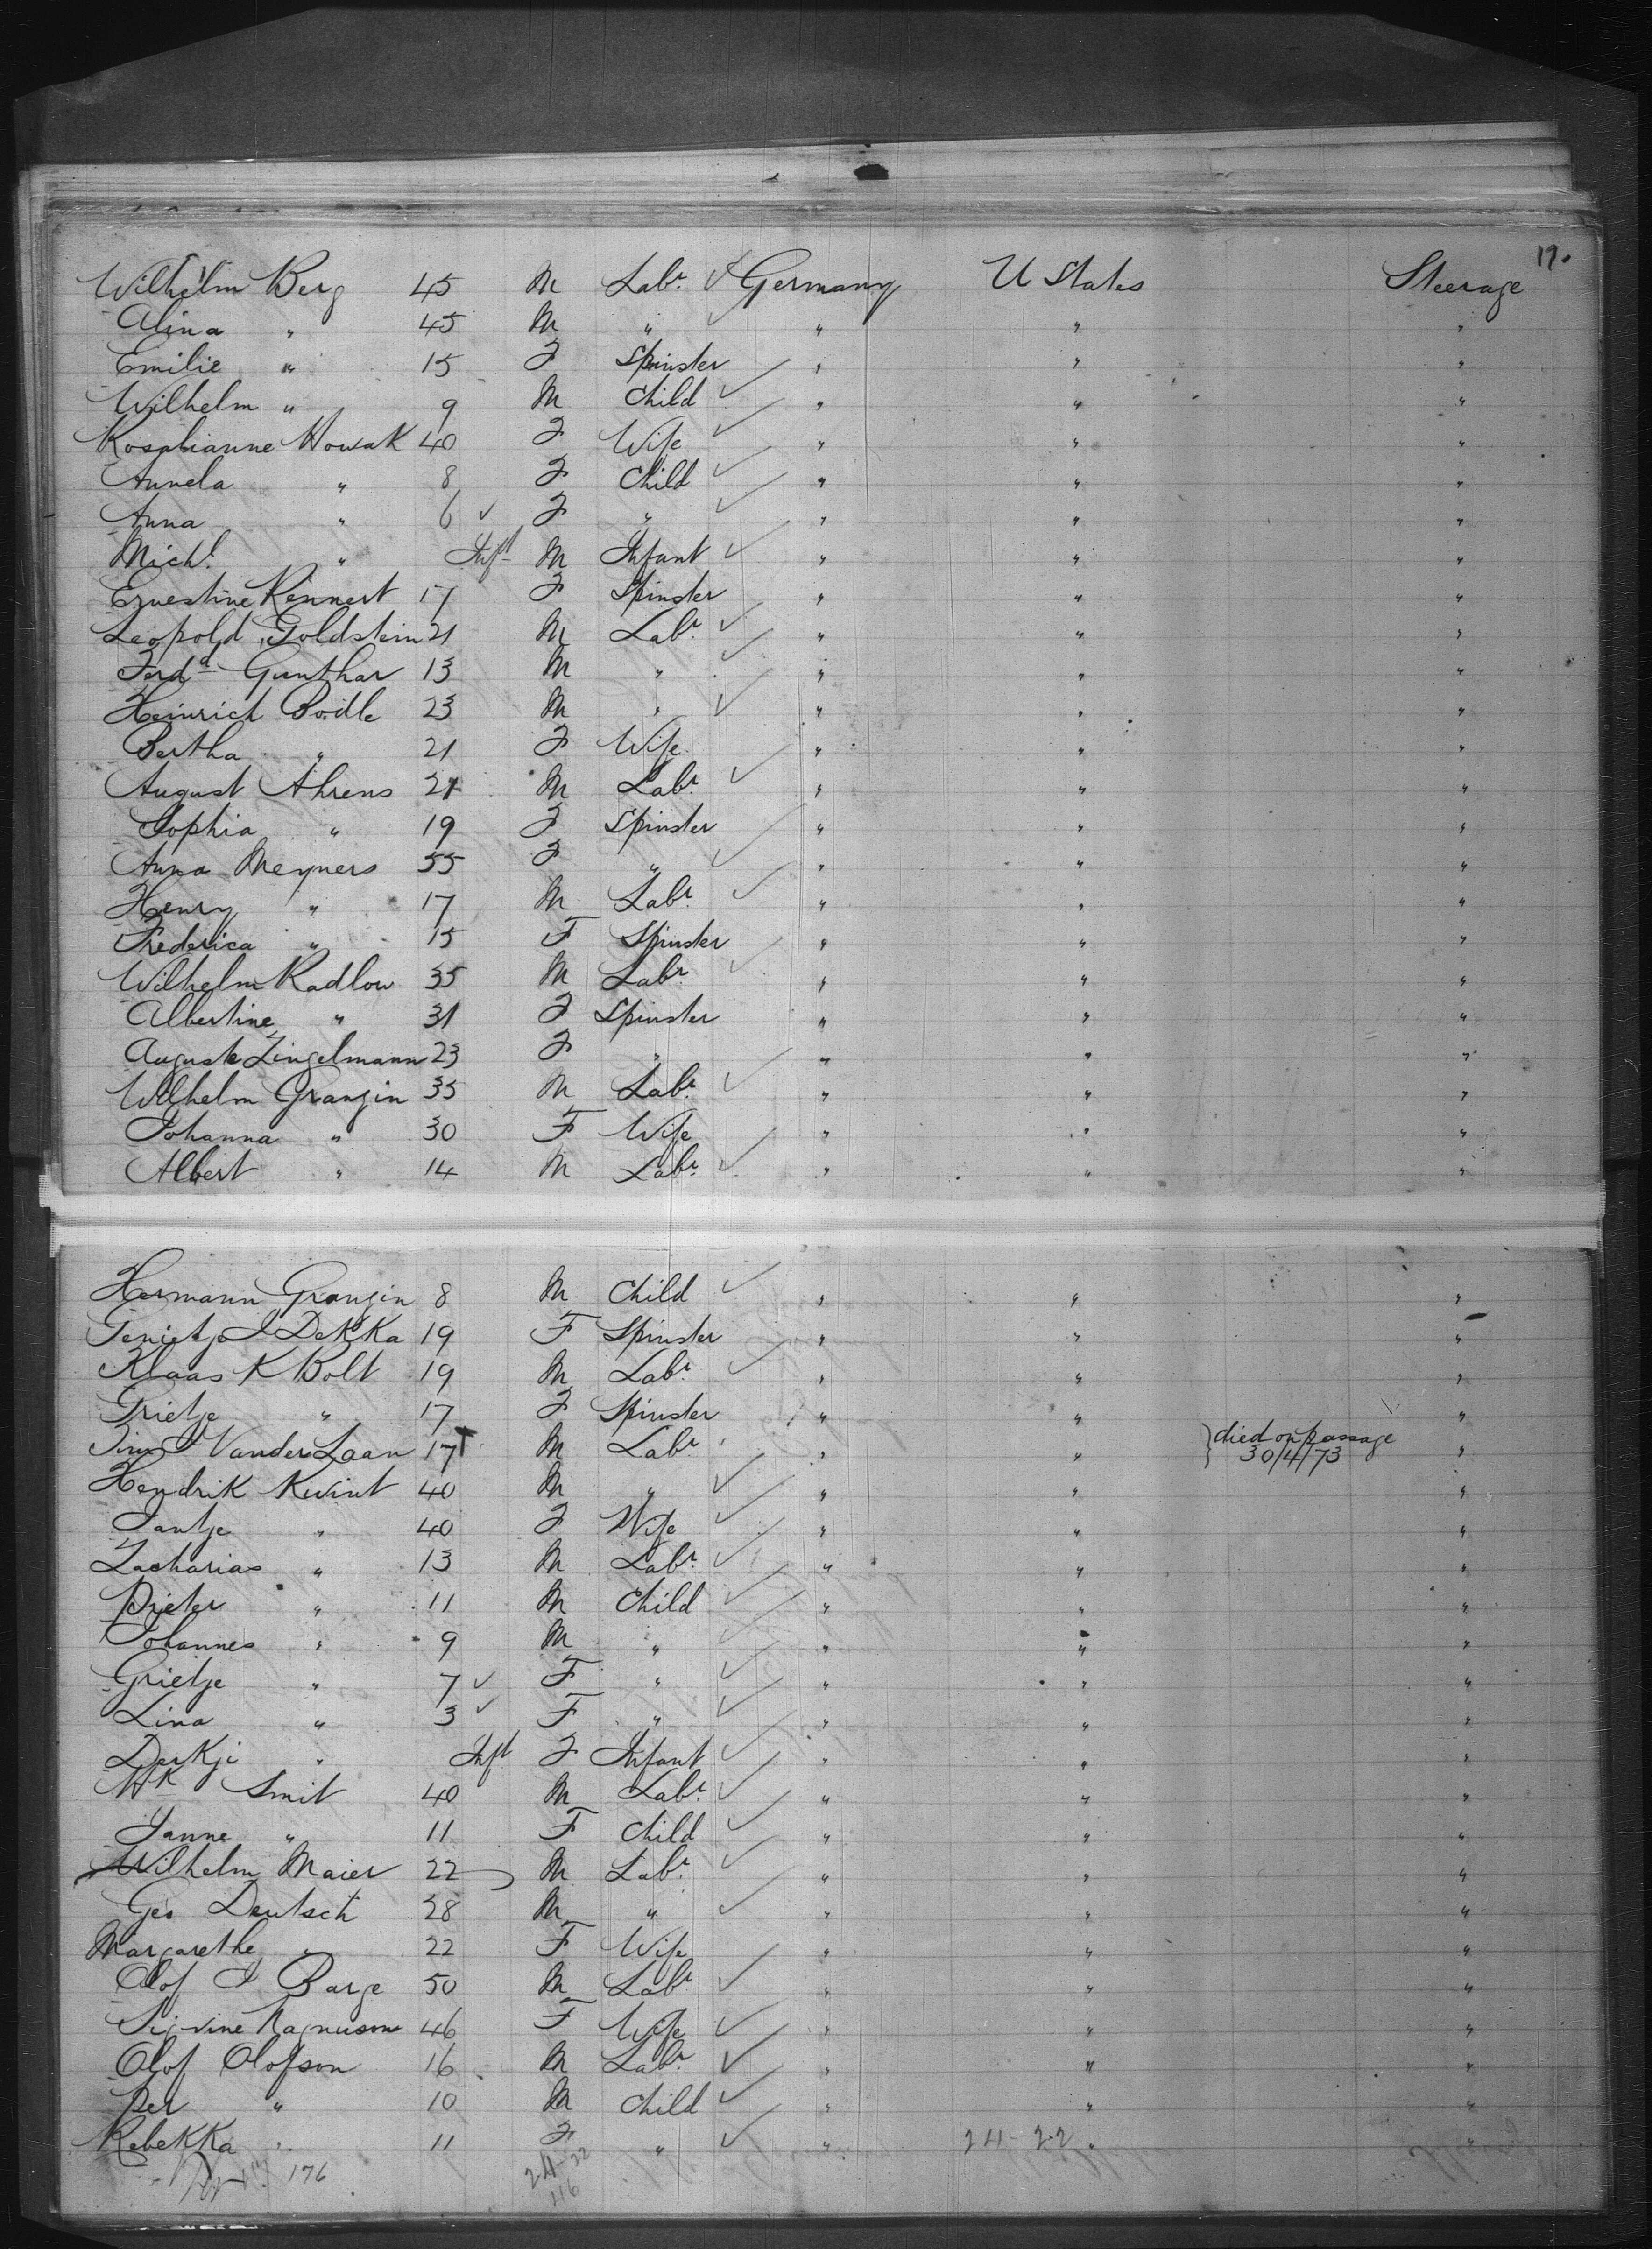 17.
Wilhelm Berg 45 M Labr. Germany U States Steerage
Alina " 45 M " " " "
Emilie " 15 F Spinster " " "
Wilhelm " 9 M Child " " "
Rosalianne Nowak 40 F Wife " " "
Annela " 8 F Child " " "
Anna " 6 F " " " "
Michl. " Inft M Infant " " "
Ernestine Rennert 17 F Spinster " " "
Leopold Goldstein 21 M Labr. " " "
Ferdd Gunthar 13 M " " " "
Heinrich Bodle 23 M " " " "
Bertha " 21 F Wife " " "
August Ahrens 21 M Labr. " " "
Sophia " 19 F Spinster " " "
Anna Meyners 55 F " " " "
Henry " 17 M Labr. " " "
Frederica " 15 F Spinster " " "
Wilhelm Radlow 35 M Labr. " " "
Albertine " 31 F Spinster " " "
Auguste Zingelmann 23 F " " " "
Wilhelm Granzin 35 M Labr. " " "
Johanna " 30 F Wife " " "
Albert " 14 M Labr. " " "
Hermann Granzin 8 M Child " " "
J Dekka 19 F Spinster " " "
Klaas K Bolt 19 M Labr. " " "
Grietje " 17 F Spinster " " "
Vander Laan 17 M Labr. " " died on passage "
30/4/73
Hendrik Kwint 40 M " " " "
Jantje " 40 F Wife " " "
Zacharias " 13 M Labr. " " "
Pieter " 11 M Child " " "
Johannes " 9 M " " " "
Grietje " 7 F " " " "
Lina " 3 F " " " "
Derkji " Inft F Infant " " "
Hk Smit 40 M Labr. " " "
Janne " 11 F Child " " "
Wilhelm Maier 22 M Labr. " " "
Geo Deutsch 28 M " " " "
Margarethe " 22 F Wife " " "
Olof J Barge 50 M Labr " " "
Magnuson 46 F Wife " " "
Olof Olofson 16 M Labr. " " "
Per " 10 M Child " " "
Rebekka " 11 F " " 24-22 " "
176 24-22
116